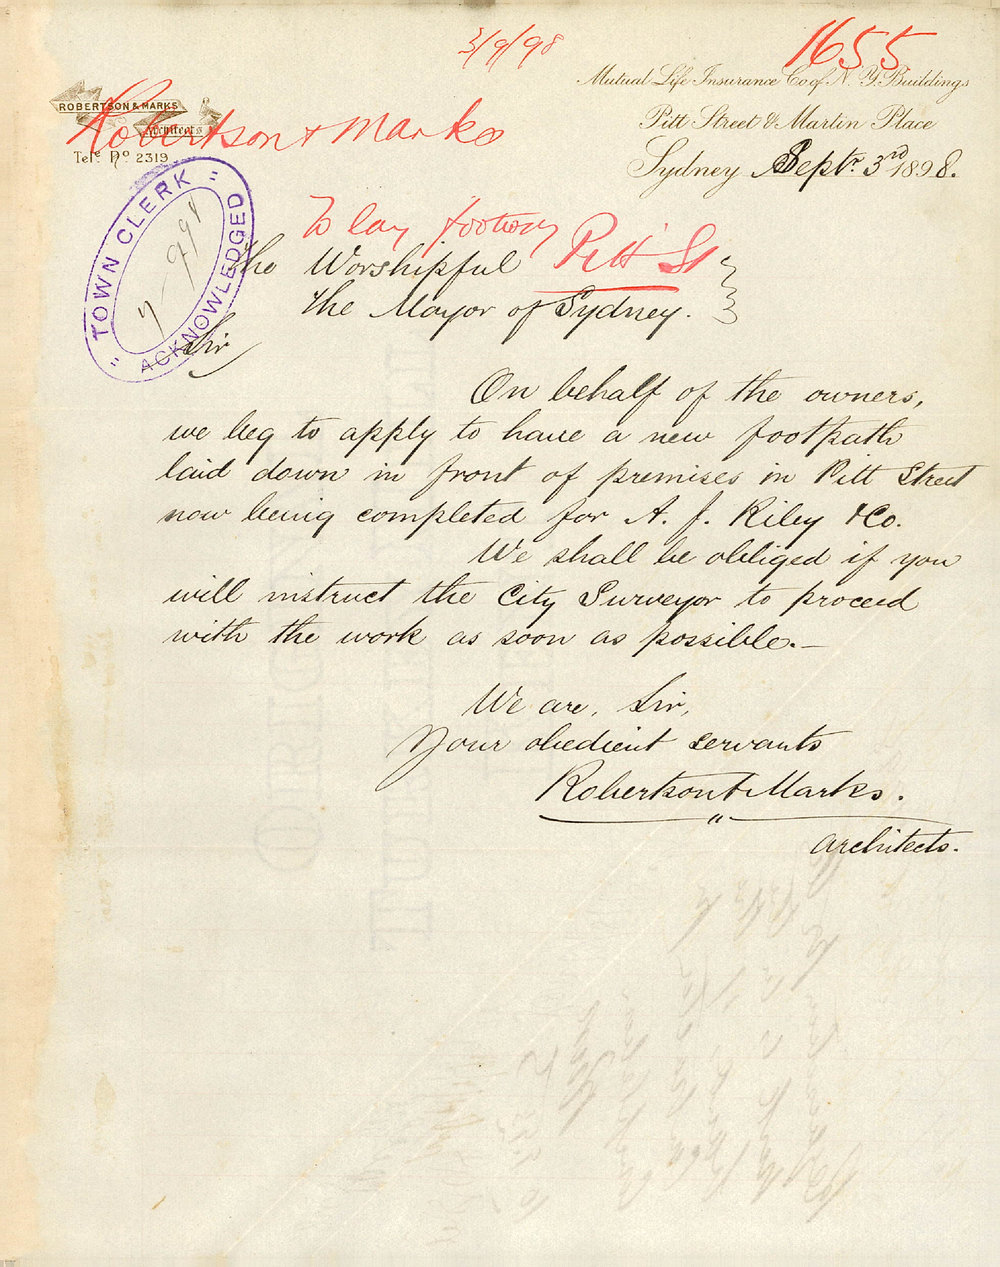 3/9/98
1655
Mutual Life Insurance Co of N. Y. Buildings
Pitt Street & Martin Place
Sydney Septr 3rd 1898.
ROBERTSON & MARKS
Architects
Tele No 2319
Robertson & Marks
TOWN CLERK
ACKNOWLEDGED
To lay footway Pitt St
The Worshipful
The Mayor of Sydney.
Sir
On behalf of the owners,
we beg to apply to have a new footpath
laid down in front of premises in Pitt Street
now being completed for A. J. Riley & Co.
We shall be obliged if you
will instruct the City Surveyor to proceed
with the work as soon as possible.—
We are, Sir,
Your obedient servants
Robertson & Marks.
Architects.